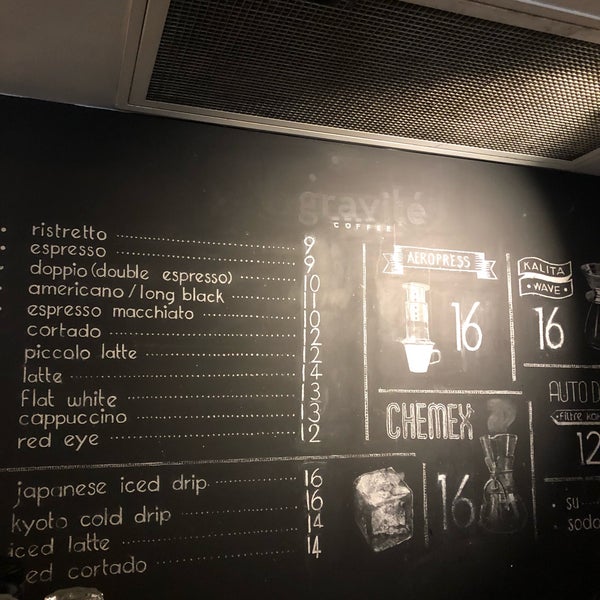 gravité
COFFEE
ristretto 9
espresso 9
doppio (double espresso) 10
americano / long black 10
espresso macchiato 10
cortado 12
piccolo latte 12
latte 14
flat white 13
cappuccino 13
red eye 12
japanese iced drip 16
kyoto cold drip 16
iced latte 14
ed cortado 14
AEROPRESS
16
KALITA
WAVE
16
CHEMEX
16
AUTO D
FILTRE
12
su
soda